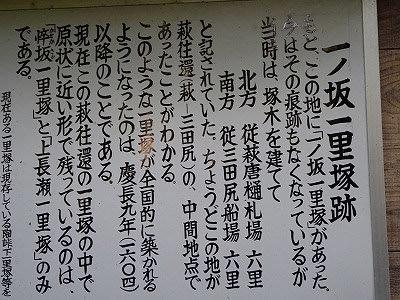 一ノ坂一里塚跡
もと、この地に「一ノ坂一里塚」があった。
今はその痕跡もなくなっているが
当時は、塚木を建てて
北方 従萩唐樋札場 六里
南方 従三田尻船場 六里
と記されていた。ちょうどこの地が
萩往還(萩-三田尻)の、中間地点で
あったことがわかる。
このような一里塚が全国的に築かれる
ようになったのは、慶長九年(一六〇四)
以降のことである。
現在この萩往還の一里塚の中で
原状に近い形で残っているのは、
「悴坂一里塚」と「上長瀬一里塚」のみ
である。
現在ある一里塚は現存している悴坂一里塚等を